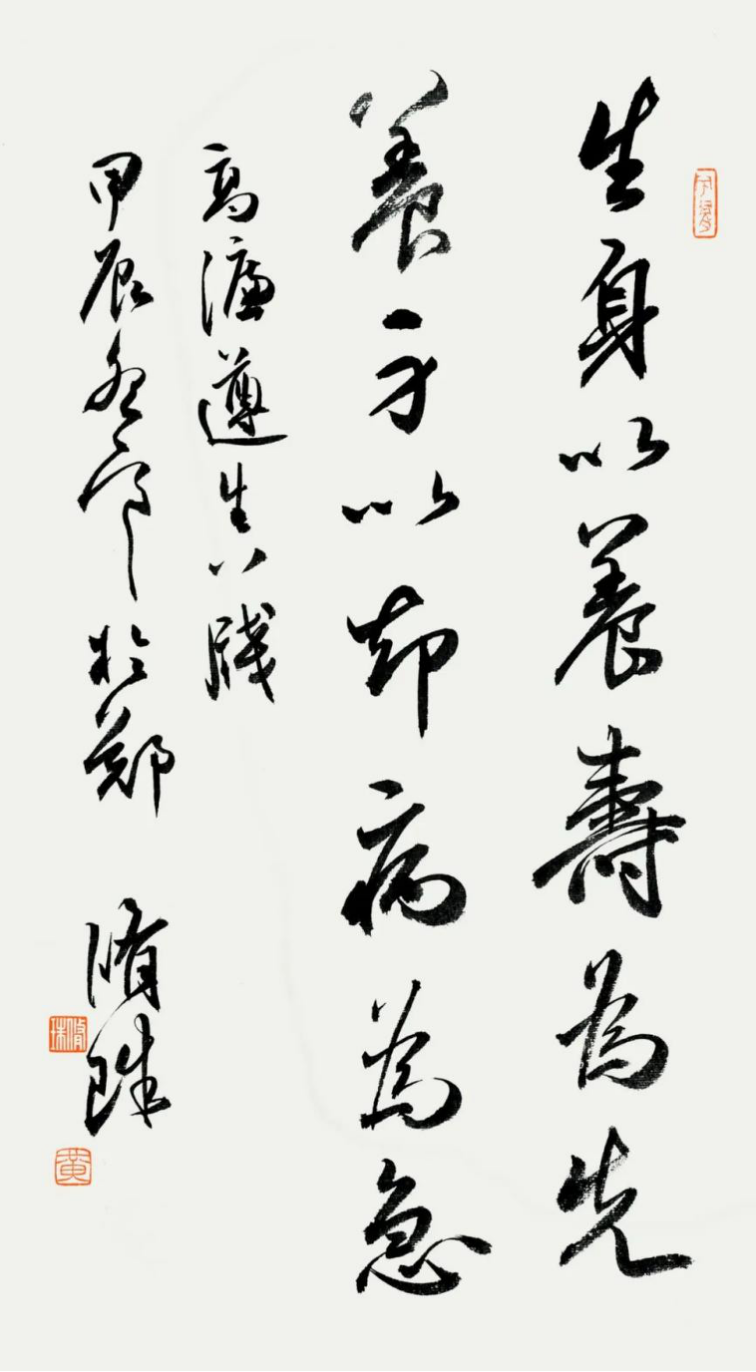 生身以養壽為先
養身以却病為急
高濂遵生八牋
甲辰於鄭 脩珠
脩珠
黄